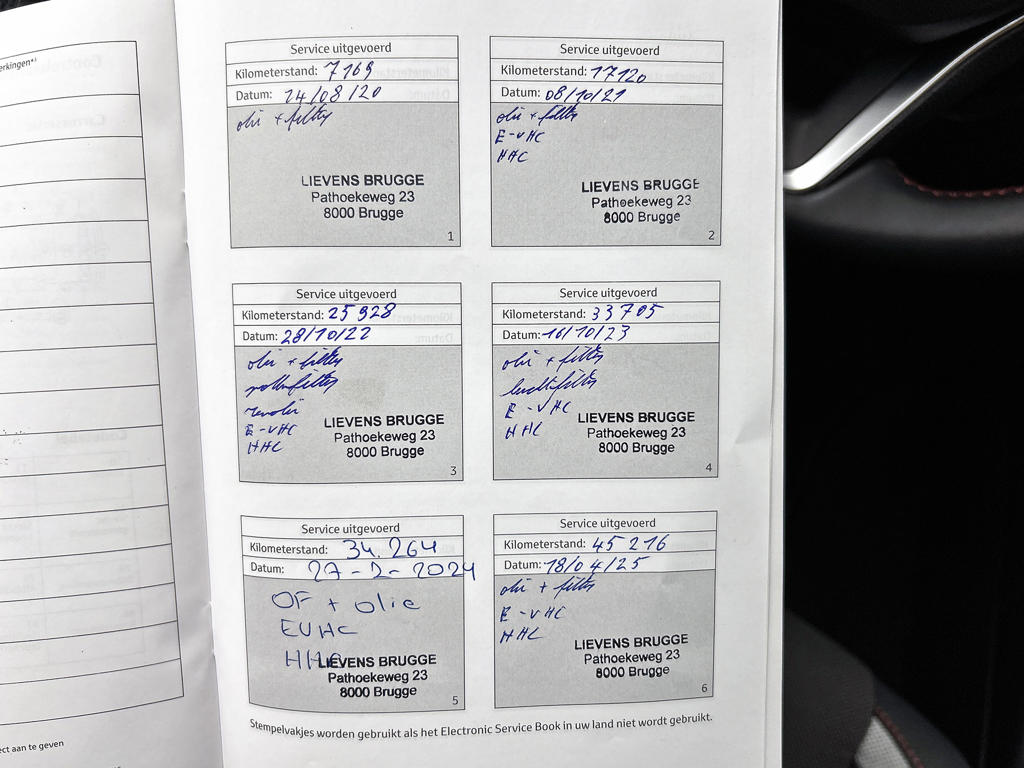 erkingen*)
ect aan te geven
Service uitgevoerd
Kilometerstand: 7169
Datum: 24/08/20
olie + filter
LIEVENS BRUGGE
Pathoekeweg 23
8000 Brugge
1
Service uitgevoerd
Kilometerstand: 17120
Datum: 08/10/21
olie + filter
E-VHC
HHC
LIEVENS BRUGGE
Pathoekeweg 23
8000 Brugge
2
Service uitgevoerd
Kilometerstand: 25928
Datum: 28/10/22
olie + filter
pollenfilter
remolie
E-VHC
HHC
LIEVENS BRUGGE
Pathoekeweg 23
8000 Brugge
3
Service uitgevoerd
Kilometerstand: 33705
Datum: 16/10/23
olie + filter
luchtfilter
E-VHC
HHC
LIEVENS BRUGGE
Pathoekeweg 23
8000 Brugge
4
Service uitgevoerd
Kilometerstand: 34.264
Datum: 27-2-2024
OF + olie
EVHC
HHC
LIEVENS BRUGGE
Pathoekeweg 23
8000 Brugge
5
Service uitgevoerd
Kilometerstand: 45216
Datum: 18/04/25
olie + filter
E-VHC
HHC
LIEVENS BRUGGE
Pathoekeweg 23
8000 Brugge
6
Stempelvakjes worden gebruikt als het Electronic Service Book in uw land niet wordt gebruikt.